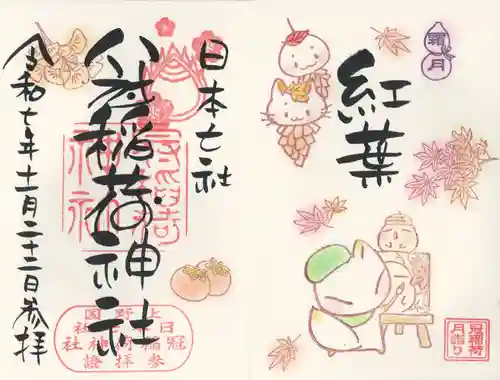 霜月
紅葉
冠稲荷
月詣り
日本七社
冠稲荷神社
令和七年十一月二十二日参拝
上野国
冠稲荷神社
参拝證